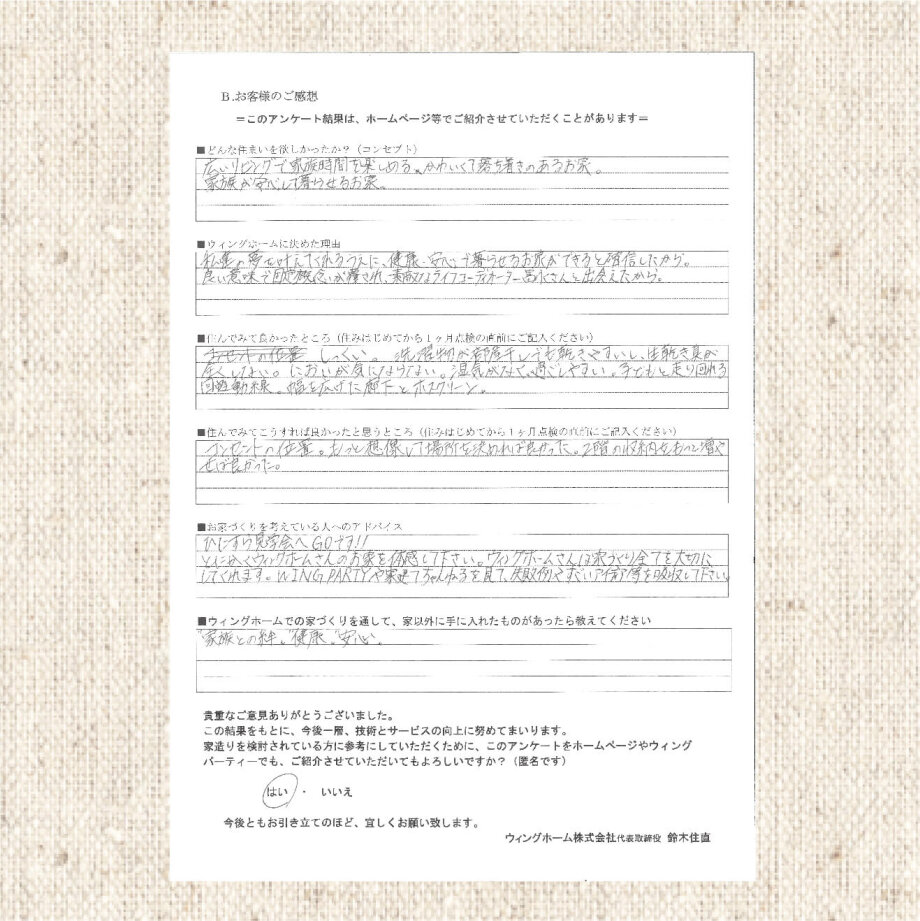 B.お客様のご感想
＝このアンケート結果は、ホームページ等でご紹介させていただくことがあります＝
■どんな住まいを欲しかったか？（コンセプト）
広いリビングで家族時間を楽しめる。かわいくて落ち着きのあるお家。
家族が安心して暮らせるお家。
■ウィングホームに決めた理由
私達の夢を叶えてくれるうえに、健康・安心で暮らせるお家ができると確信したから。
良い意味で固定概念が覆され、素敵なライフコーディネーター冨永さんと出会えたから。
■住んでみて良かったところ（住みはじめてから１ヶ月点検の直前にご記入ください）
の位置 しっくい。洗濯物が部屋干しでも乾きやすいし、生乾き臭が
全くしない。においが気にならない。湿気がなくて過ごしやすい。子どもと走り回れる
回遊動線。幅を広げた廊下とホスクリーン。
■住んでみてこうすれば良かったと思うところ（住みはじめてから１ヶ月点検の直前にご記入ください）
コンセントの位置。もっと想像して場所を決めれば良かった。2階の収納をもっと増や
せば良かった。
■お家づくりを考えている人へのアドバイス
ひたすら見学会へGOです!!
とにかくウィングホームさんのお家を体感して下さい。ウィングホームさんは家づくり全てを大切に
してくれます。WING PARTYや家建てちゃんねるを見て、失敗例や アイデア等を吸収して下さい。
■ウィングホームでの家づくりを通して、家以外に手に入れたものがあったら教えてください
家族との絆。健康。安心。
貴重なご意見ありがとうございました。
この結果をもとに、今後一層、技術とサービスの向上に努めてまいります。
家造りを検討されている方に参考にしていただくために、このアンケートをホームページやウィング
パーティーでも、ご紹介させていただいてもよろしいですか？（匿名です）
はい ・ いいえ
今後ともお引き立てのほど、宜しくお願い致します。
ウィングホーム株式会社代表取締役 鈴木住直